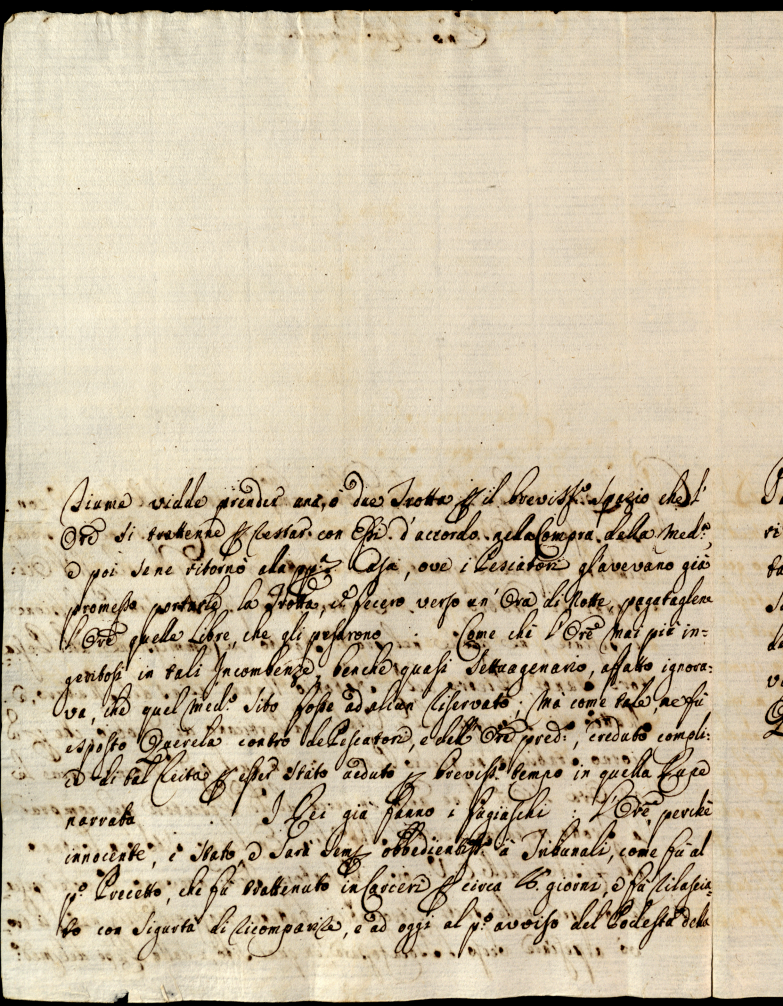 fiume vidde prender una, ò due Trotta p il breviss:º Spazio che l'
Orē si trattenne p restar con Essi d'accordo nella Compra della Med:ª,
e poi se ne ritornò alla ppª Casa, ove i Pescatori gl'avevano già
promesso portarle la Trotta, e il fecero verso un' Ora di Notte, pagatagliene
l'Orē quelle Libre, che gli pesarono. Come che l'Orē mai più in=
geritosi in tali Incombenze, benche quasi Settuagenario, affatto ignora:
va, che quel Med:º Sito fosse ad alcun Riservato; Ma come tale, ne fù
esposto Querela contro de Pescatori, e dell' Orē pred:º, creduto compli:
ce di tal Reità p esser stato veduto p breviss:º tempo in quella
narrata. I Rei già fanno i fugiaschi: L'Orē, perche
innocente, è stato, e sarà semp obbedientiss:º à Tribunali, come fù al
pº Precetto, che fù trattenuto in Carceri p circa giorni, e fù rilascia:
to con Sigurtà di ricomparire, e ad oggi al pº avviso del Podestà della